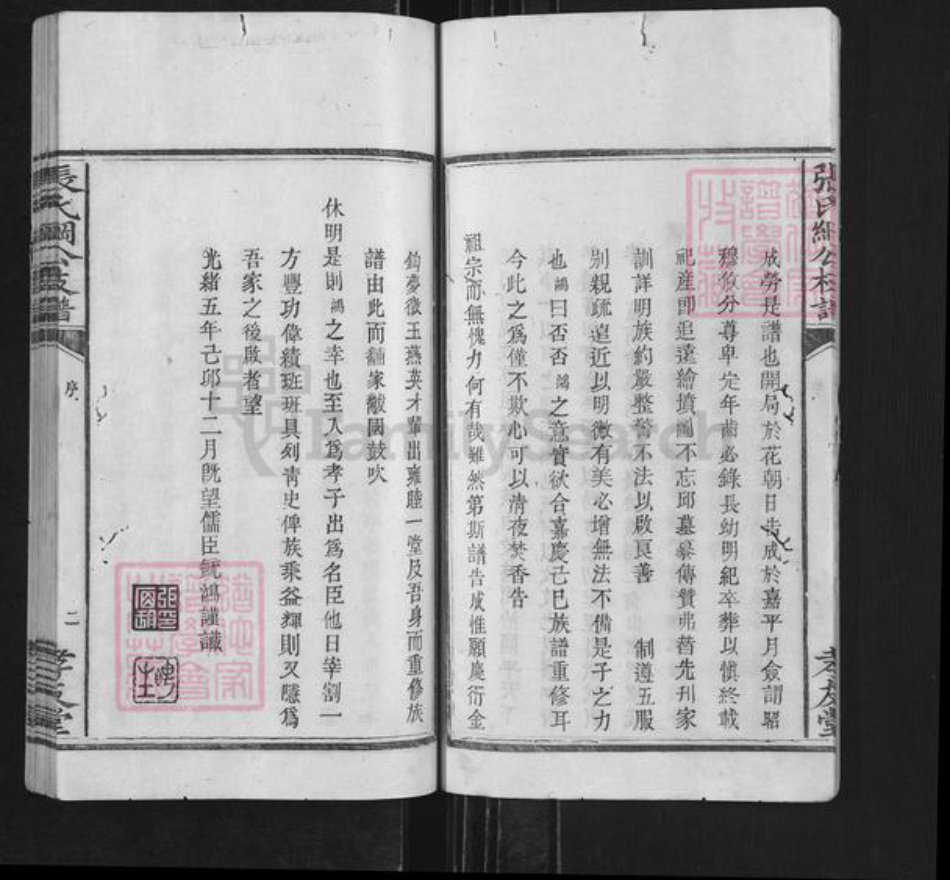 張氏綱公枝譜
孝友堂
成勞是譜也開局於花朝日告成於嘉平月僉謂昭
穆攸分尊卑定年齒必錄長幼明紀卒葬以慎終載
祀產即追遠繪墳圖不忘邱墓彙傳贊弗替先刋家
訓詳明族約嚴整警不法以啟良善 制遵五服
別親疏遠近以明微有美必增無法不備是子之力
也鴻曰否否鴻之意實欲合嘉慶己巳族譜重修耳
今此之爲僅不欺心可以清夜焚香告
祖宗而無愧力何有哉雖然第斯譜告成惟願慶衍金
鈎夢徵玉燕英才輩出雍睦一堂及吾身而重修族
譜由此而黼家黻國鼓吹
休明是則鴻之幸也至入爲孝子出爲名臣他日宰割一
方豐功偉績班班具列靑史俾族乘益輝則又隱爲
吾家之後啟者望
光緒五年己邱十二月既望儒臣毓鴻謹識
張氏綱公枝譜
序
二
孝友堂
FamilySearch